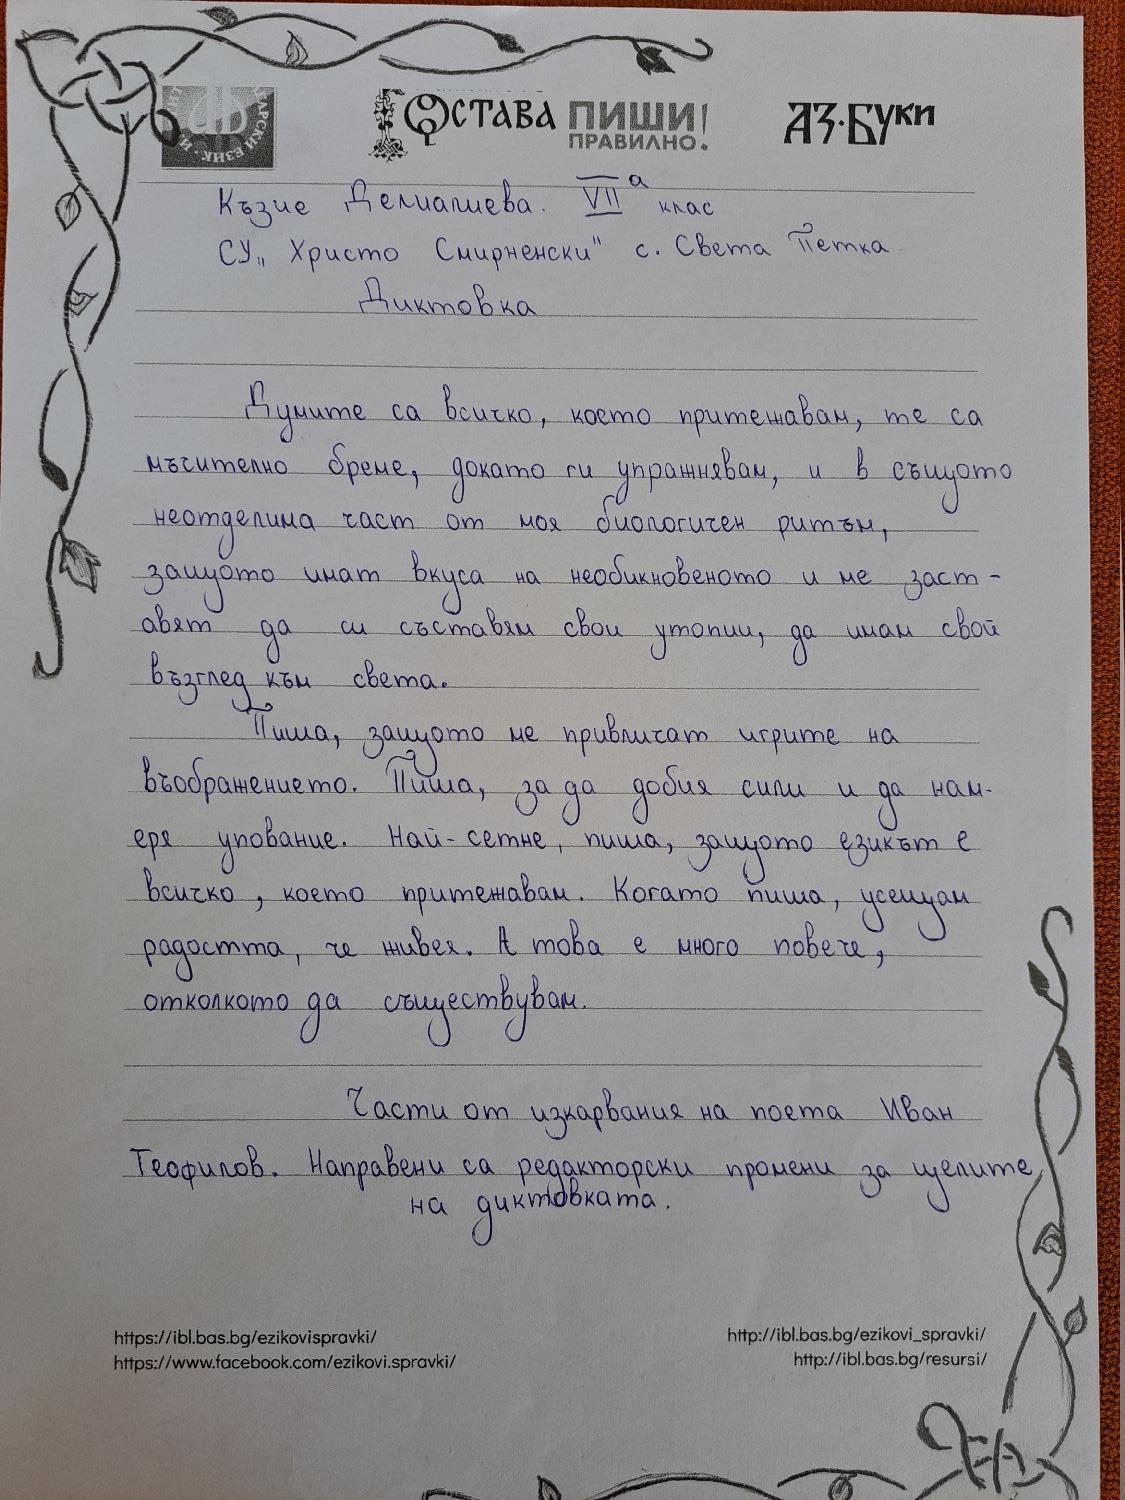 ОСТАВА ПИШИ ПРАВИЛНО! АЗ·БУКИ
Кързие Делиалиева. VIIа клас
СУ„ Христо Смирненски" с. Света Петка.
Диктовка
Думите са всичко, което притежавам, те са
мъчително бреме, докато ги упражнявам, и в същото
неотделима част от моя биологичен ритъм,
защото имат вкуса на необикновеното и ме заст-
авят да си съставям свои утопии, да имам свой
възглед към света.
Пиша, защото ме привличат игрите на
въображението. Пиша, за да добия сили и да нам-
еря упование. Най-сетне, пиша, защото езикът е
всичко, което притежавам. Когато пиша, усещам
радостта, че живея. А това е много повече,
отколкото да съществувам.
Части от изкарвания на поета Иван
Теофилов. Направени са редакторски промени за щелите
на диктовката.
https://ibl.bas.bg/ezikovispravki/ http://ibl.bas.bg/ezikovi_spravki/
https://www.facebook.com/ezikovi.spravki/ http://ibl.bas.bg/resursi/